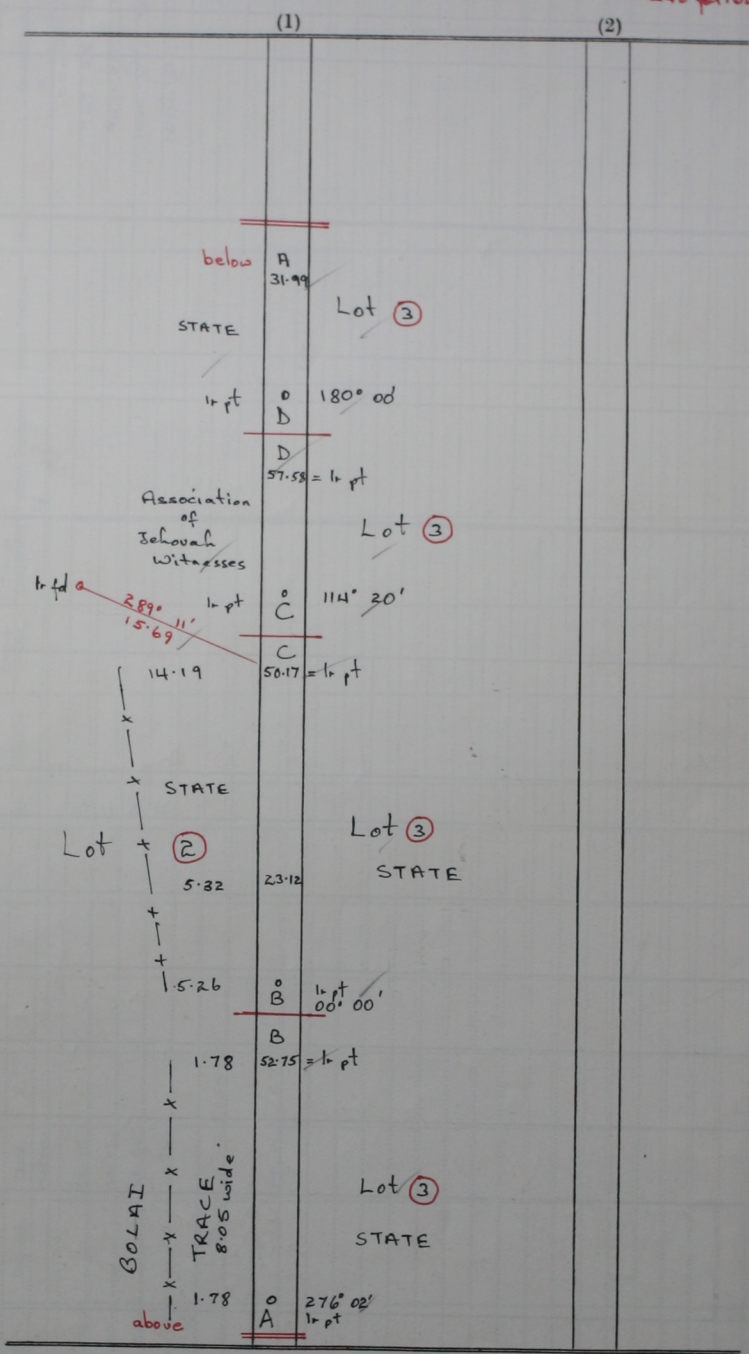 (1) (2)
below A
31.99
Lot 3
STATE
Ir pt 0 180° 00'
D
D
57.58 = Ir pt
Association
of
Jehovah
Witnesses
Lot 3
Ir fd
289° 11'
15.69
Ir pt 0 114° 20'
C
C
14.19 50.17 = Ir pt
STATE
Lot 2
Lot 3
STATE
5.32 23.12
5.26 0 Ir pt
B 00° 00'
B
1.78 52.75 = Ir pt
BOLAI
TRACE
8.05 wide
Lot 3
STATE
1.78 0 276° 02'
above A Ir pt